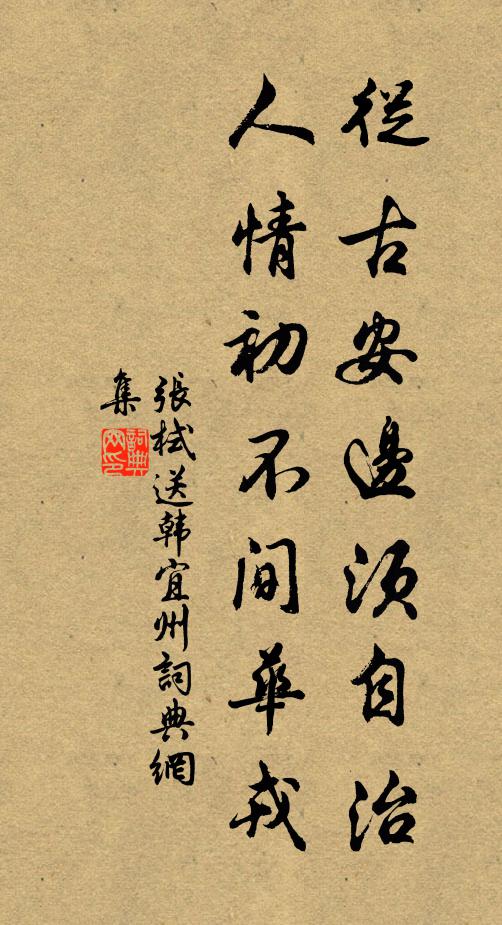 從古安邊須自治
人情初不間華戎
張栻送韩宜州詞典網
集
詞典網印